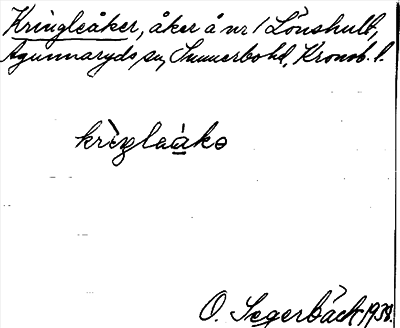 Kringleåker, åker å nr 1 Lönshult,
Agunnaryds sn, Sunnerbo hd, Kronob. l.
krìŋlaàkə
O. Segerbäck 1938.